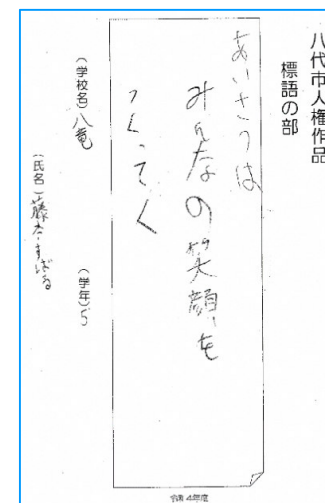 八代市人権作品
標語の部
あいさつは
みんなの笑顔を
つくってく
(学校名)八竜
(学年)5
(氏名)藤本すばる
令和4年度